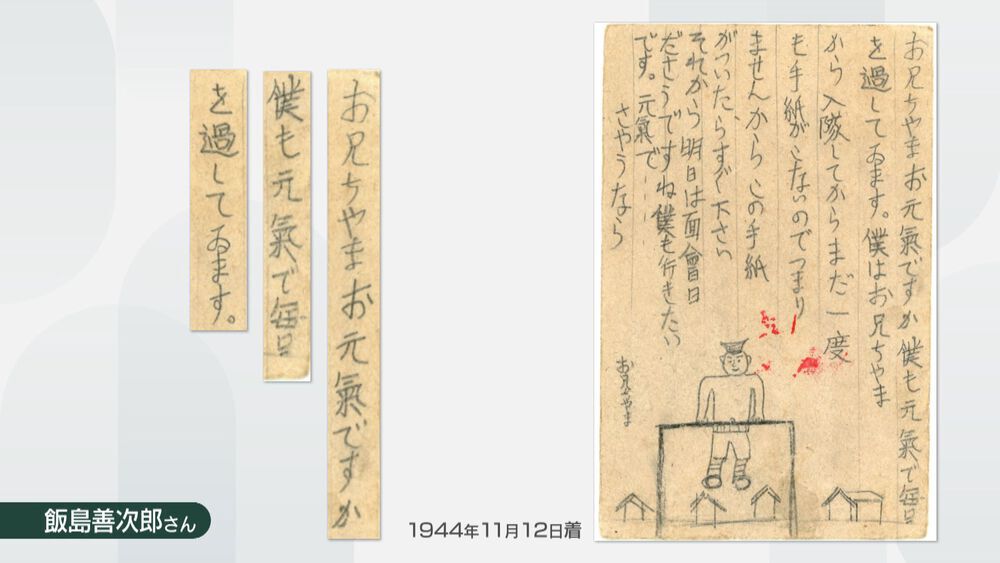 お兄ちやまお元氣ですか
僕も元氣で毎日
を過してゐます。
お兄ちやまお元氣ですか僕も元氣で毎日
を過してゐます。僕はお兄ちやま
から入隊してからまだ一度
も手紙がこないのでつまり
ませんからこの手紙
がついたらすぐ下さい
それから明日は面會日
ださうですね僕も行きたい
です。元氣で……
さやうなら
お兄ちやま
飯島善次郎さん
1944年11月12日着